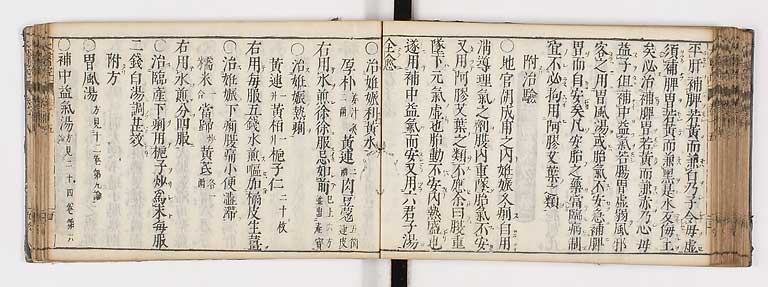 平肝補脾若黃而兼白乃子令母虛
須補脾胃若黃而兼黑是水反侮土
矣必治補脾胃若黃而兼赤乃心母
益子但補中益氣若腸胃虛弱風邪
客之用胃風湯或胎氣不安急補脾
胃而自安矣凡安胎之藥當臨病制
宜不必拘用阿膠艾葉之類
附治驗
〇地官胡成甫之內妊娠久痢自用
消導理氣之劑腰內重墜胎氣不安
又用阿膠艾葉之類不應余曰腰重
墜下元氣虛也胎動不安內熱盛也
遂用補中益氣而安又用六君子湯
全愈
〇治妊娠利黃水
厚朴 姜汁炙 黃連 二兩 肉豆蔻 五個連皮
右用水煎徐徐服忌如前
〇治妊娠熱痢
黃連 一升 黃柏 一升 梔子仁 二十枚
右用每服五錢水煎嘔加橘皮生薑
〇治妊娠下痢腹痛小便澀滯
糯米 一合 當歸 炒 黃芪 各一兩
右用水煎分四服
〇治臨產下痢用梔子炒為末每服
二錢白湯調甚效
附方
〇胃風湯 方見十二卷第九論
〇補中益氣湯 方見二十四卷第六